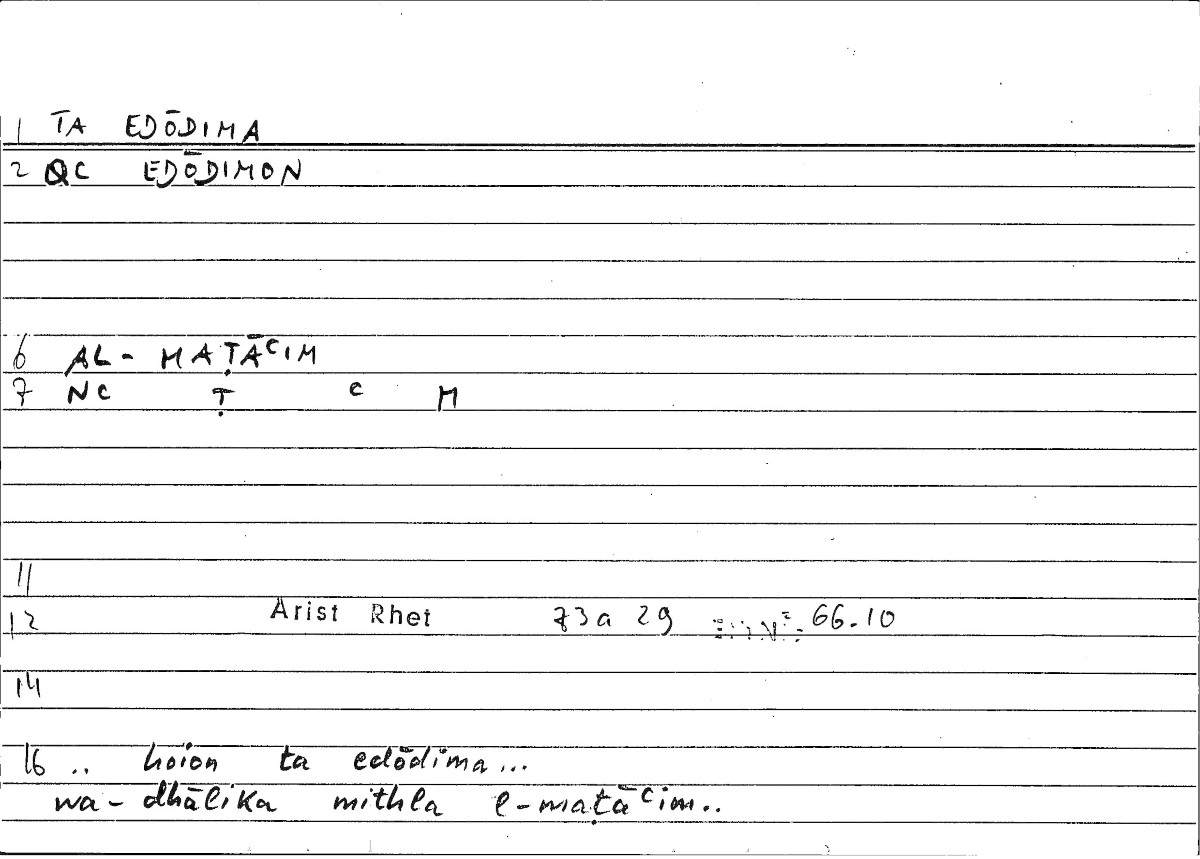 1 TA EDŌDIMA
2 QC EDŌDIMON
6 AL-MAṬĀᶜIM
7 NC Ṭ ᶜ M
11
12 Arist Rhet 73a 29 66.10
14
16 .. hoion ta edōdima...
wa-dhālika mithla l-maṭāᶜim..